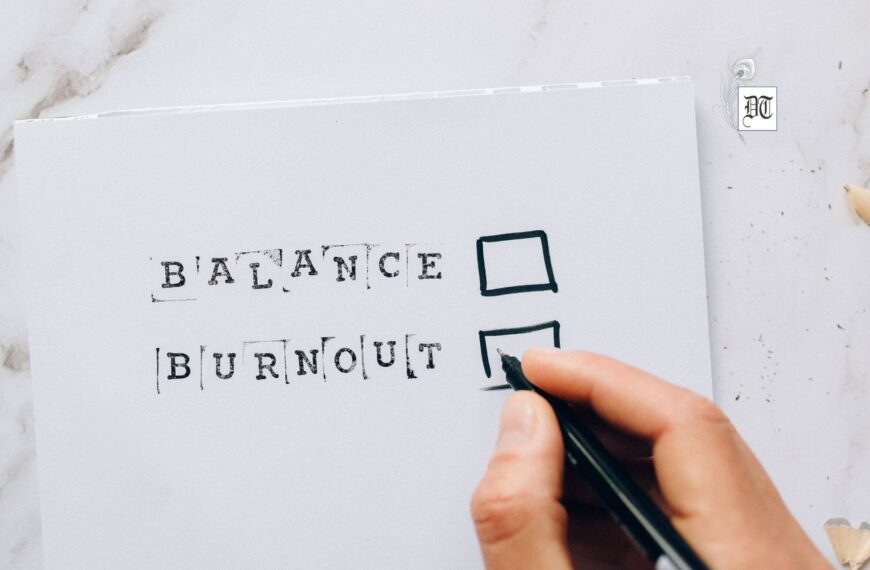 DT
BALANCE
BURNOUT